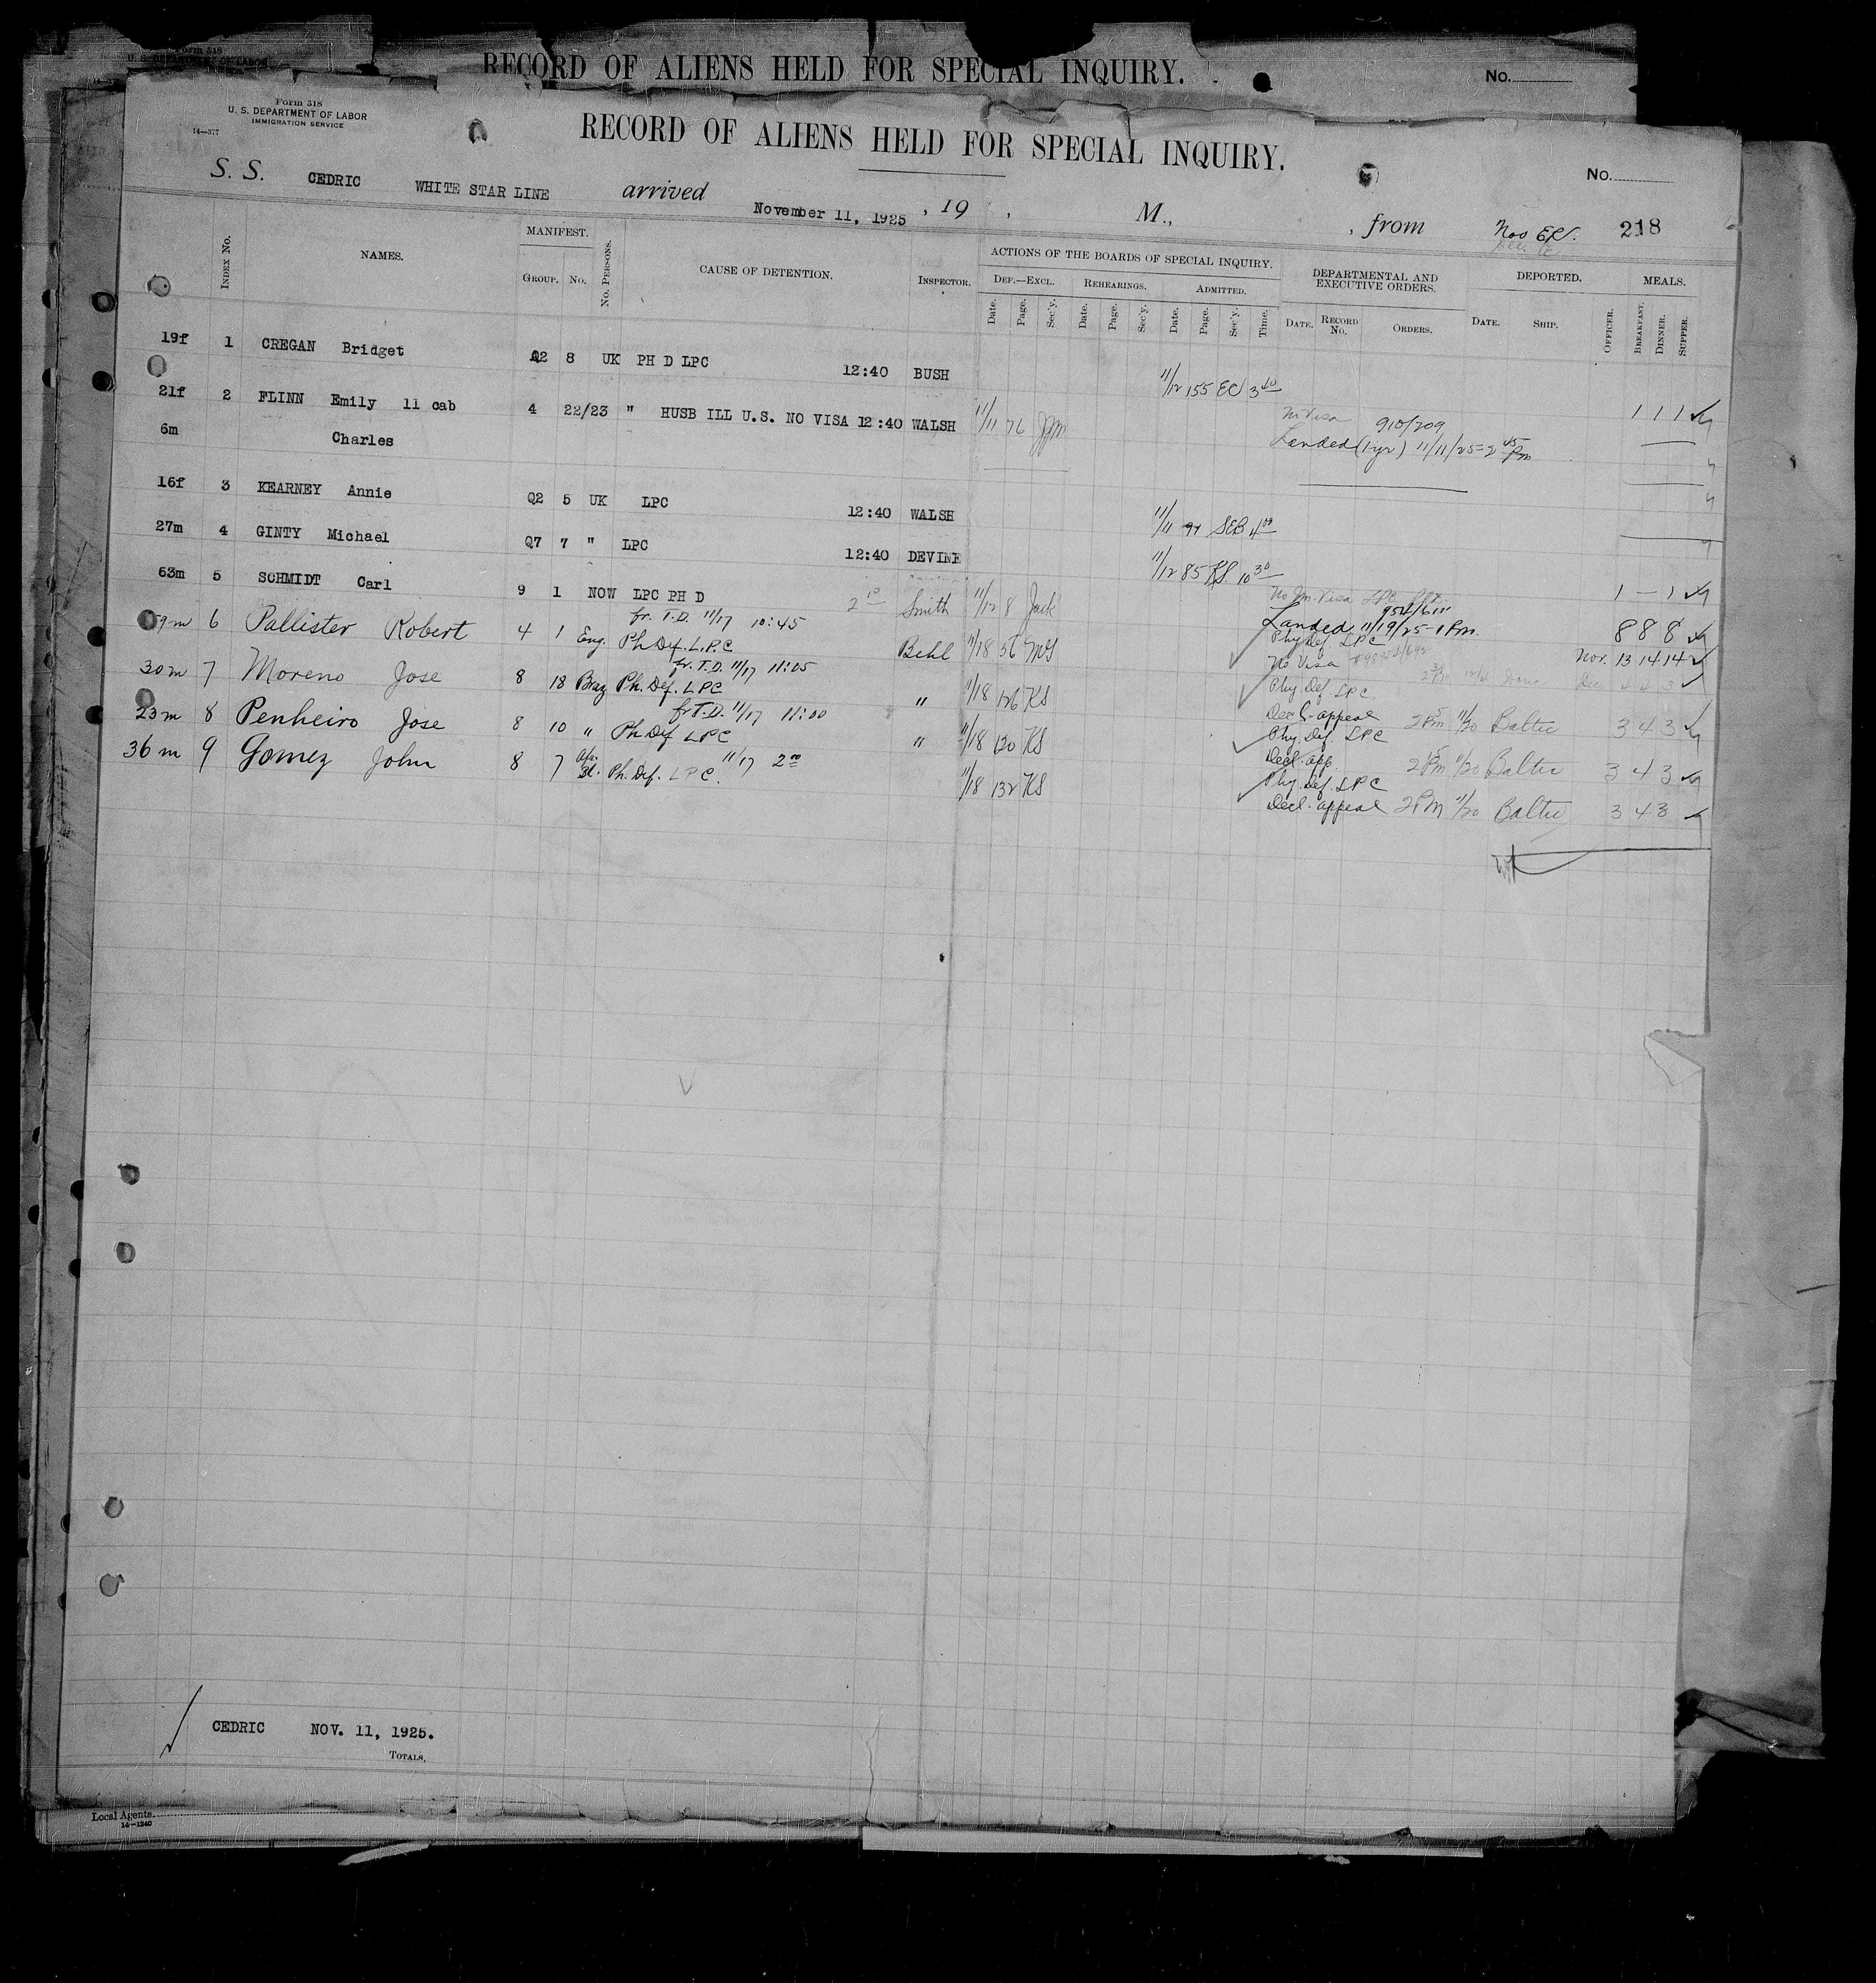 Form 518
U. S. DEPARTMENT OF LABOR
RECORD OF ALIENS HELD FOR SPECIAL INQUIRY.
No.
Form 518
U. S. DEPARTMENT OF LABOR
IMMIGRATION SERVICE
14—377
RECORD OF ALIENS HELD FOR SPECIAL INQUIRY.
No.
S. S. CEDRIC WHITE STAR LINE arrived November 11, 1925 , 19 , M., , from 218
INDEX No. NAMES. MANIFEST. GROUP. No. No. PERSONS. CAUSE OF DETENTION. INSPECTOR. ACTIONS OF THE BOARDS OF SPECIAL INQUIRY. DEPARTMENTAL AND EXECUTIVE ORDERS. DEPORTED. MEALS.
DEF.—EXCL. REHEARINGS. ADMITTED.
Date. Page. Sec'y. Date. Page. Sec'y. Date. Page. Sec'y. Time. DATE. RECORD No. ORDERS. DATE. SHIP. OFFICER. BREAKFAST. DINNER. SUPPER.
19f 1 CREGAN Bridget Q2 8 UK PH D LPC 12:40 BUSH 11/12 155 EC 3 40
21f 2 FLINN Emily 11 cab 4 22/23 " HUSB ILL U.S. NO VISA 12:40 WALSH 11/11 76 No Visa 910/209 1 1 1
6m Charles Landed (1yr) 11/11/25 - 2 45 Pm
16f 3 KEARNEY Annie Q2 5 UK LPC 12:40 WALSH 11/11 97 SEB 4 00
27m 4 GINTY Michael Q7 7 " LPC 12:40 DEVINE 11/12 85 KS 10 30
63m 5 SCHMIDT Carl 9 1 NOW LPC PH D 2 10 Smith 11/12 8 Jack No Im. Visa LPC 954/611 1 — 1
Landed 11/19/25 - 1 Pm. 8 8 8
59m 6 Pallister Robert 4 1 Eng. Ph Def. L.P.C fr. T.D. 11/17 10:45 Behl 11/18 56 MS Phy Def LPC
No Visa Nov. 13 14 14
Dec 4 4 3
30m 7 Moreno Jose 8 18 Braz Ph. Def. LPC fr. T.D. 11/17 11:05 " 11/18 126 KS Phy. Def. LPC
Decl. appeal 2 15 Pm 11/20 Baltic 3 4 3
23m 8 Penheiro Jose 8 10 " Ph Def LPC fr T.D. 11/17 11:00 " 11/18 130 KS Phy Def LPC
Decl. app. 2 15 Pm 11/20 Baltic 3 4 3
36m 9 Gomez John 8 7 Ph. Def. LPC. 11/17 2 00 11/18 132 KS Phy. Def. LPC
Decl. appeal 2 PM 11/20 Baltic 3 4 3
CEDRIC NOV. 11, 1925.
TOTALS.
Local Agents
14—1240